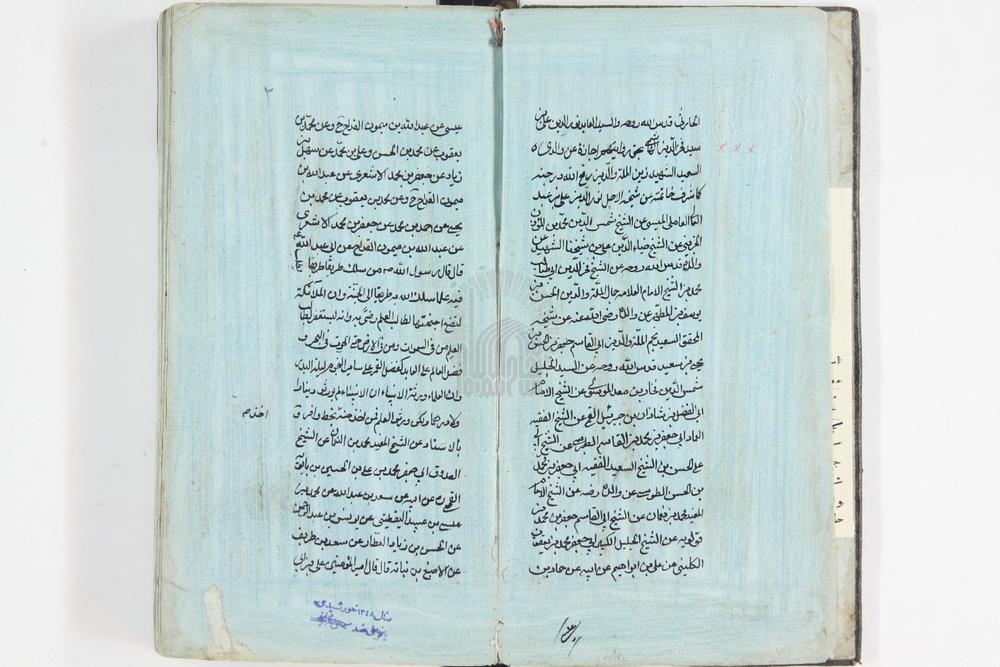 الحارثي قدس الله روحه والسيد العابد نور الدين علي بن
سيد فخر الدين الهاشمي بحق روايتهم اجازة عن والدي
السعيد الشهيد زين الملة والدين رفع الله درجته
كما شرف خاتمته عن شيخه الاجل نور الدين علي بن عبد
العالي العاملي الميسي عن الشيخ شمس الدين محمد بن المؤذن
الجزيني عن الشيخ ضياء الدين علي بن شيخنا الشهيد عن
والده قدس الله روحه عن الشيخ فخر الدين ابي طالب
محمد بن الشيخ الامام العلامة جمال الملة والدين الحسن بن
يوسف بن المطهر عن والده رضي الله عنه عن شيخه
المحقق السعيد نجم الملة والدين ابي القاسم جعفر بن الحسن بن
يحيى بن سعيد قدس الله روحه عن السيد الجليل
شمس الدين فخار بن معد الموسوي عن الشيخ الامام
ابي الفضل بن شاذان بن جبرئيل القمي عن الشيخ الفقيه
العماد ابي جعفر محمد بن ابي القاسم الطبري عن الشيخ ابي
علي الحسن بن الشيخ السعيد الفقيه ابي جعفر محمد
بن الحسن الطوسي عن والده رضه عن الشيخ الامام
المفيد محمد بن نعمان عن الشيخ ابي القاسم جعفر بن محمد بن
قولويه عن الشيخ الجليل الكبير ابي جعفر محمد بن يعقوب
الكليني عن علي بن ابراهيم عن ابيه عن حماد بن
٢
عيسى عن عبد الله بن ميمون القداح ح وعن محمد بن
يعقوب عن محمد بن الحسن وعلي بن محمد عن سهل بن
زياد عن جعفر بن محمد الاشعري عن عبد الله بن
ميمون القداح ح وعن محمد بن يعقوب عن محمد بن
يحيى عن احمد بن محمد عن جعفر بن محمد الاشعري
عن عبد الله بن ميمون القداح عن ابي عبد الله
قال قال رسول الله ص من سلك طريقا يطلب
فيه علما سلك الله به طريقا الى الجنة وان الملائكة
لتضع اجنحتها لطالب العلم رضى به وانه ليستغفر لطالب
العلم من في السموات ومن في الارض حتى الحوت في البحر و
فضل العالم على العابد كفضل القمر على ساير النجوم ليلة البدر
وان العلماء ورثة الانبياء ان الانبياء لم يورثوا دينارا
ولا درهما ولكن ورثوا العلم فمن اخذ منه بحظ وافر و
اخذ ص
بالاسناد عن الشيخ المفيد محمد بن النعمان عن الشيخ
الصدوق ابي جعفر محمد بن علي بن الحسين بن بابويه
القمي ره عن ابيه عن سعد بن عبد الله عن محمد بن
عيسى بن عبيد اليقطيني عن يونس بن عبد الرحمن
عن الحسن بن زياد العطار عن سعد بن طريف
عن الاصبغ بن نباتة قال قال امير المؤمنين علي بن ابي
سال ١٣٤٨ خورشيدى